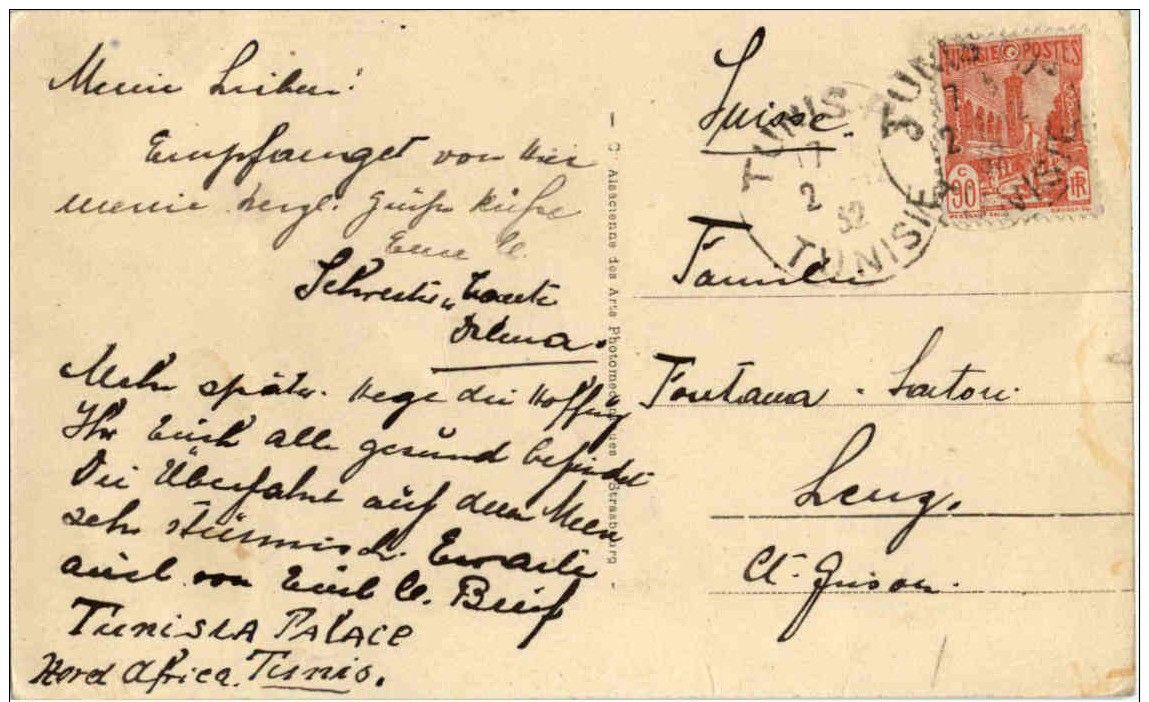 Meine Lieben!
Empfanget von hier
meine herzl. Grüße Küsse
Eure lb.
Schwester u. Tante
Delma.
Mehr später. Hege die Hoffnung
Ihr Euch alle gesund befindet
Die Überfahrt auf dem Meer
sehr stürmisch. Erwarte
auch von Euch lb. Brief
TUNISIA PALACE
Nord Africa. Tunis.
C Alsacienne des Arts Photomecaniques Strasbourg
Suisse.
Familie
Fontana - Sartori
Lenz.
Ct. Grison.
TUNISIE POSTES
90 c
RF
TUNIS
2 32
TUNISIE